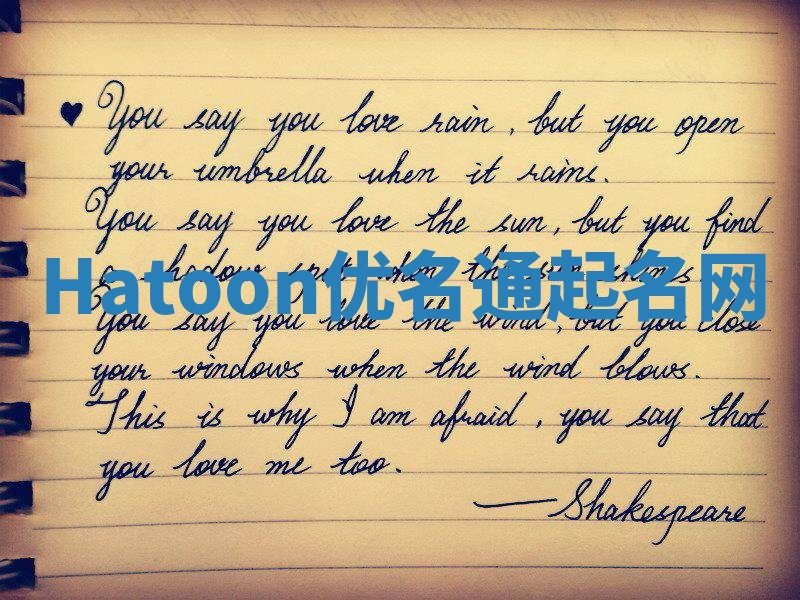 ♥ You say you love rain, but you open
your umbrella when it rains.
You say you love the sun, but you find
a shadow spot when the sun shines
Hatoon优名通起名网
You say you love the wind, but you close
your windows when the wind blows.
This is why I am afraid, you say that
you love me too.
—Shakespeare